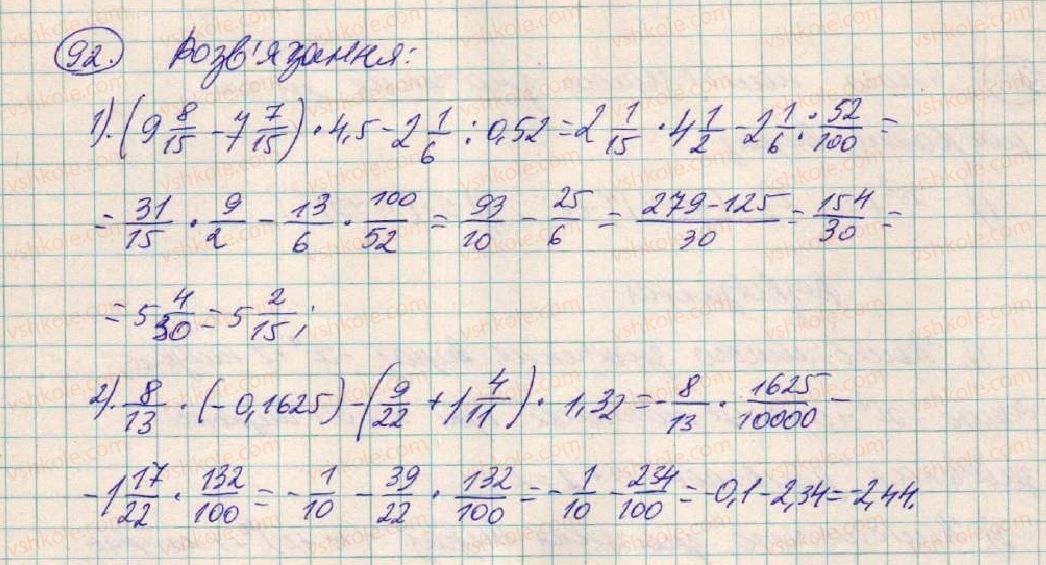 92. Розв'язання:
1). (9 8/15 - 7 7/15) · 4,5 - 2 1/6 : 0,52 = 2 1/15 · 4 1/2 - 2 1/6 : 52/100 =
= 31/15 · 9/2 - 13/6 · 100/52 = 93/10 - 25/6 = 279-125/30 = 154/30 =
= 5 4/30 = 5 2/15;
2). 8/13 · (-0,1625) - (9/22 + 1 4/11) · 1,32 = -8/13 · 1625/10000 -
- 1 17/22 · 132/100 = - 1/10 - 39/22 · 132/100 = - 1/10 - 234/100 = -0,1 - 2,34 = -2,44.